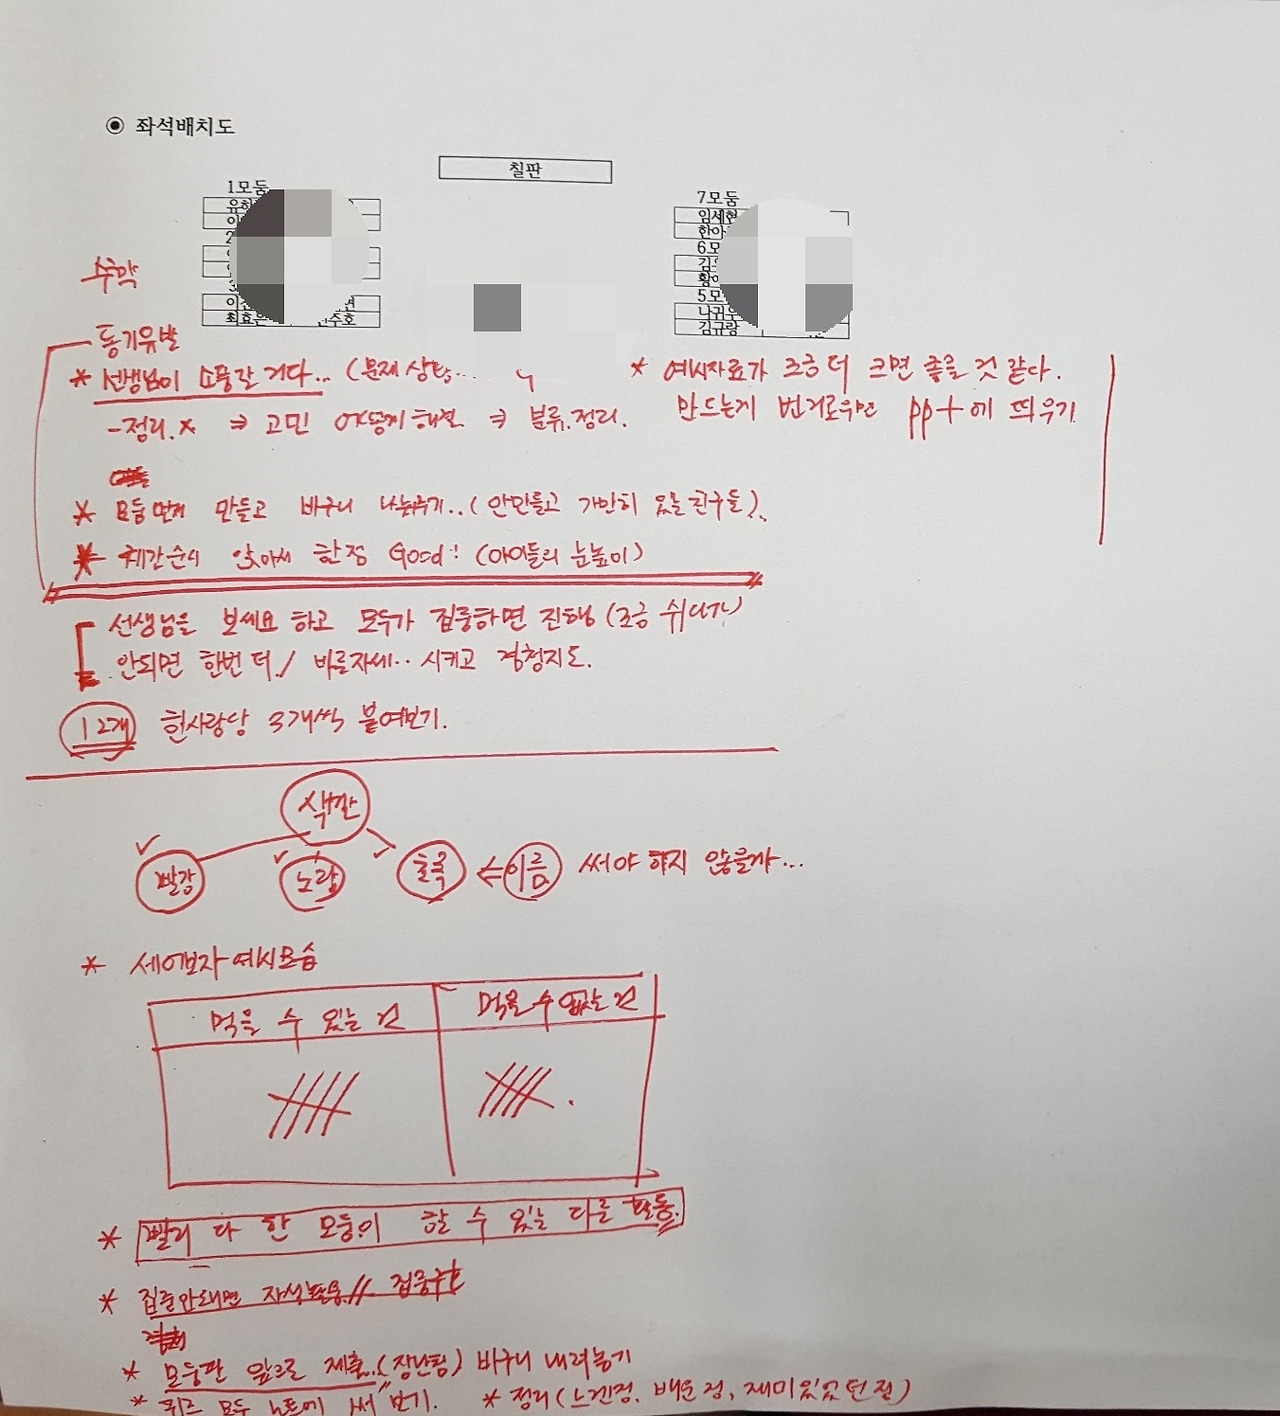 ◉ 좌석배치도
칠판
1모둠
7모둠
임세현
한아
6모
김
황
5모
나귀
김규랑
유하
이
2
3
이
최효은
주호
수학
동기유발
* 선생님이 소풍갈 거다.. (문제상황..
-정리.x ⇒ 고민 어떻게 해결 ⇒ 분류.정리.
* 예시자료가 조금 더 크면 좋을 것 같다.
만드는게 번거로우면 ppt에 띄우기
* 모둠먼저 만들고 바구니 나눠주기..(안만들고 가만히 있는 친구들).
* 체간순시 앉아서 한점 Good! (아이들의 눈높이)
선생님을 보세요 하고 모두가 집중하면 진행 (조금 쉬다가)
안되면 한번 더 / 바른자세.. 시키고 경청지도.
12개 한사람당 3개씩 붙여보기.
색깔
빨강 노랑 초록 ⇐ 이름 써야 하지 않을까...
* 세어보자 예시모습
먹을 수 있는 것 먹을 수 없는 것
* 빨리 다 한 모둠이 할 수 있는 다른 활동.
* 집중안되면 자석보상 // 집중구호
* 모둠판 앞으로 제출.(장난침) 바구니 내려놓기
* 퀴즈 모두 노트에 써 보기. * 정리(느낀점, 배운점, 재미있었던점)